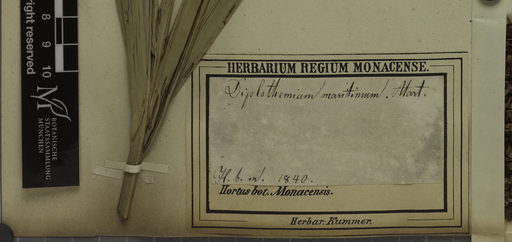 right reserved
8 9 10
M
BOTANISCHE
STAATSSAMMLUNG
MÜNCHEN
HERBARIUM REGIUM MONACENSE.
Diplothemium maritimum. Mart.
H. b. m. 1840.
Hortus bot. Monacensis.
Herbar. Kummer.